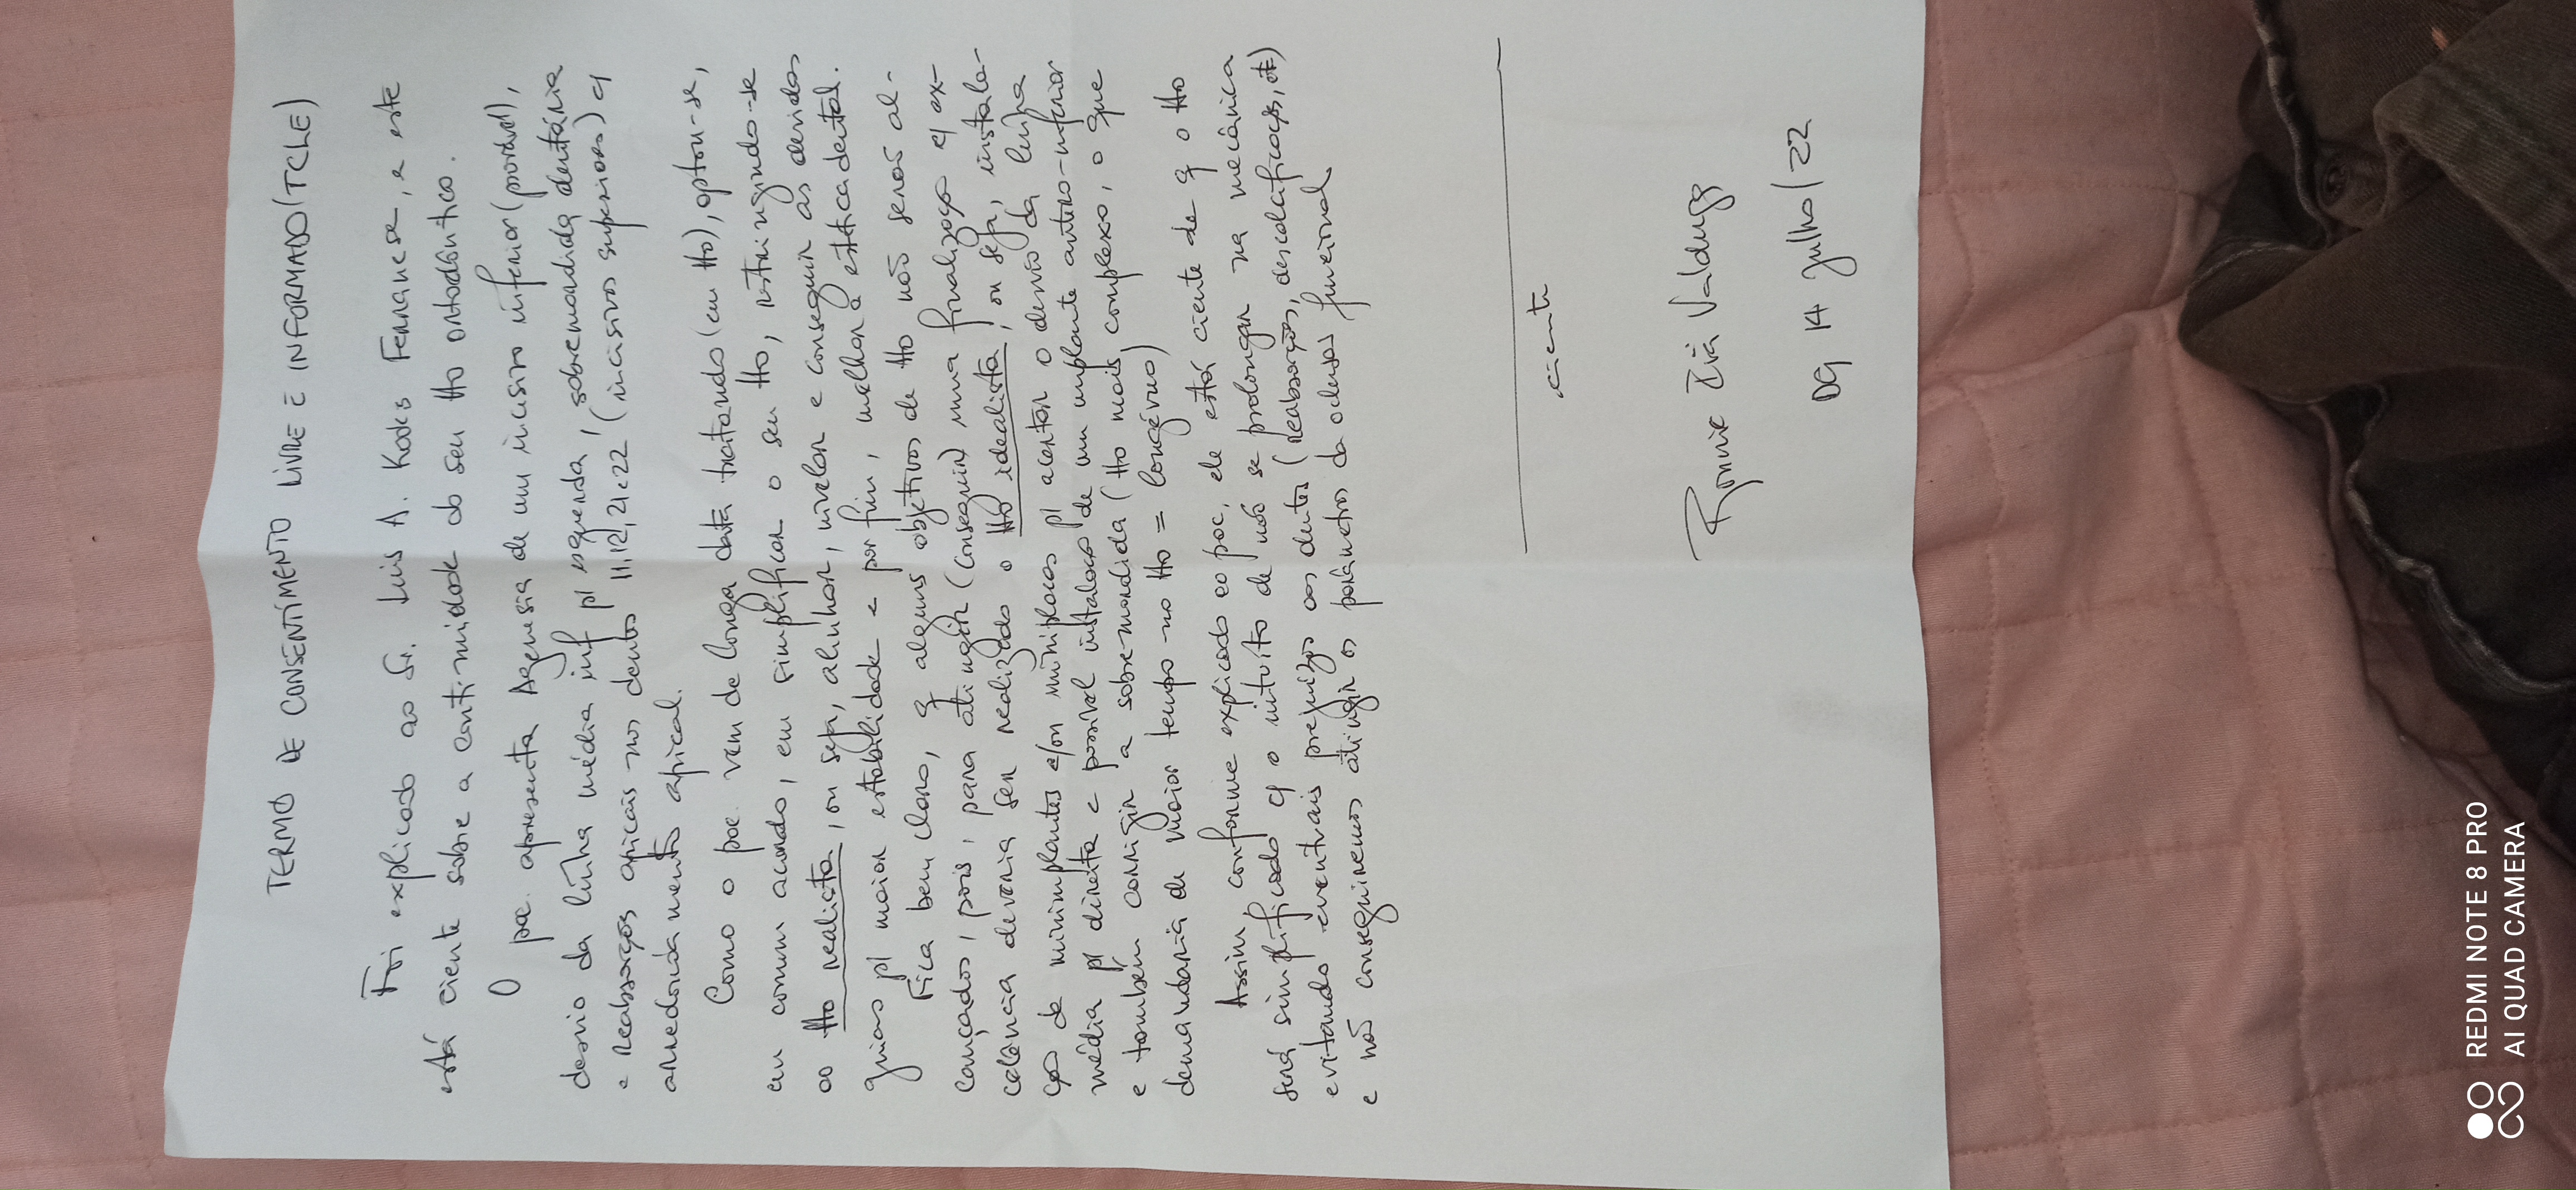 TERMO DE CONSENTIMENTO LIVRE E INFORMADO (TCLE)
Foi explicado ao Sr. Luis A. Fernanese, e este
está ciente sobre a continuidade do seu tto ortodôntico.
O pac. apresenta Agenesia de um incisivo inferior (provável),
desvio da linha média inf p/ esquerda, sobremordida dentária
e reabsorções apicais nos dentes 11, 12, 21 e 22 (incisivos superiores) c/
arredondamento apical.
Como o pac. vem de longa data tratando (em tto), optou-se,
em comum acordo, em simplificar o seu tto, restringindo-se
ao tto realista, ou seja, alinhar, nivelar e conseguir as devidas
guias p/ maior estabilidade e por fim, melhor a estética dental.
Fica bem claro, q alguns objetivos de tto não serão al-
cançados, pois, para atingir (conseguir) uma finalização c/ ex-
celência deveria ser realizado o tto idealista, ou seja, instala-
ção de miniimplantes e/ou miniplacas p/ acertar o desvio da linha
média p/ direita e possível instalação de um implante antero-inferior
e também corrigir a sobremordida (tto mais complexo, o que
demandaria de maior tempo no tto = longévuo)
Assim, conforme explicado ao pac, ele está ciente de q o tto
será simplificado c/ o intuito de não se prolongar na mecânica
evitando eventuais prejuízos aos dentes (reabsorções, descalcificações, etc)
e não conseguiremos atingir os parâmetros da oclusão funcional
ciente
Ronnie Valduga
14 julho/22
REDMI NOTE 8 PRO
AI QUAD CAMERA